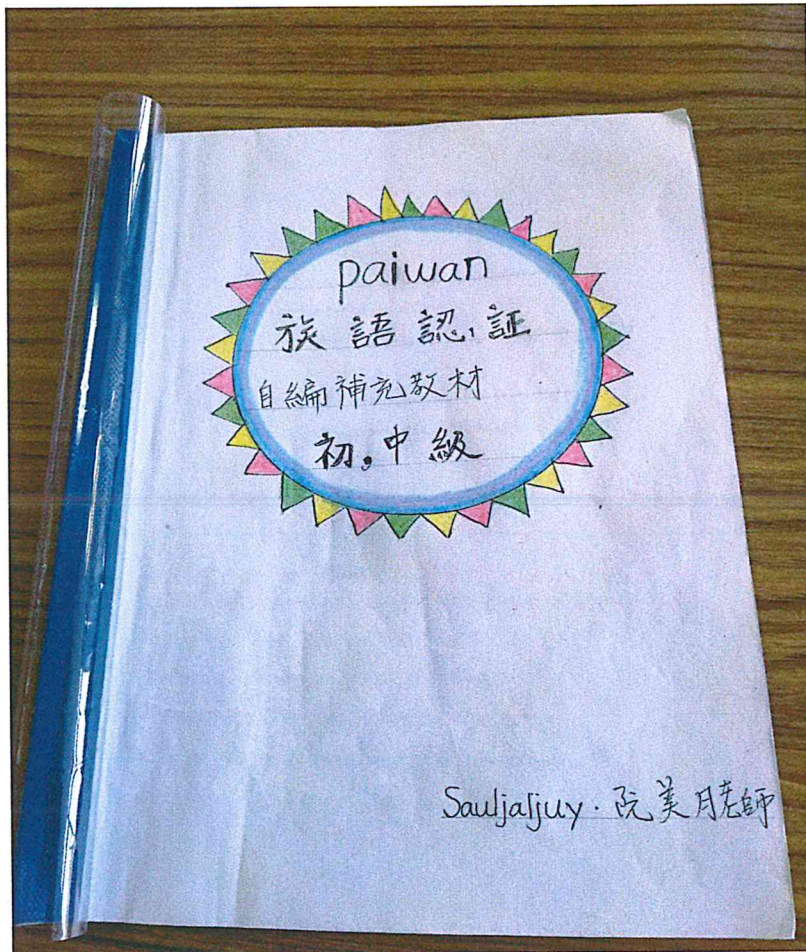 paiwan
族語認証
自編補充教材
初,中級
Sauljaljuy·阮美月老師